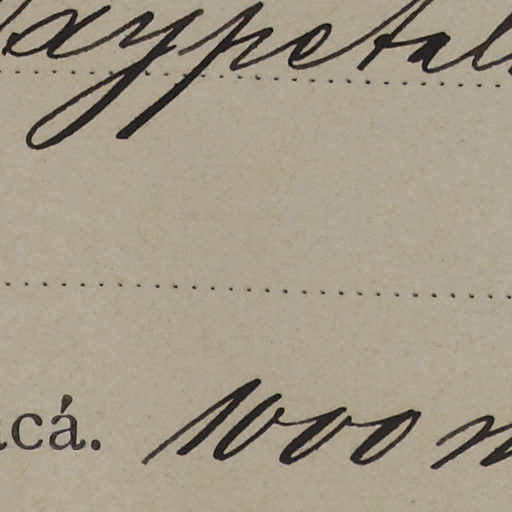 oxypetal
acá. 1000 m